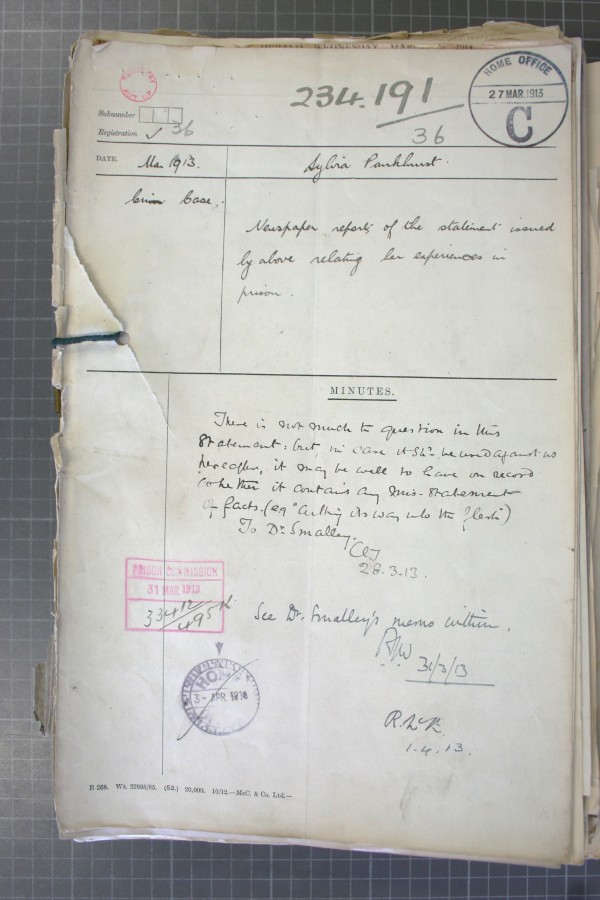 HOME OFFICE
27 MAR. 1913
C
234.191
36
Subnumber
Registration 36
DATE.
Mar 1913.
Sylvia Pankhurst.
Crim Case.
Newspaper reports of the statement issued
by above relating her experiences in
prison.
MINUTES.
There is not much to question in this
Statement: but, in case it shd. be used against us
hereafter, it may be well to have on record
whether it contains any mis-statement
of facts. (eg "Cutting its way into the flesh")
To Dr. Smalley.
28.3.13.
PRISON COMMISSION
31 MAR 1913
33412/495
See Dr. Smalley's memo within.
31/3/13
HOME
3- APR 1913
R. McK.
1.4.13.
R 268. Wt. 22895/85. (52.) 20,000. 10/12.—McC. & Co. Ltd.—